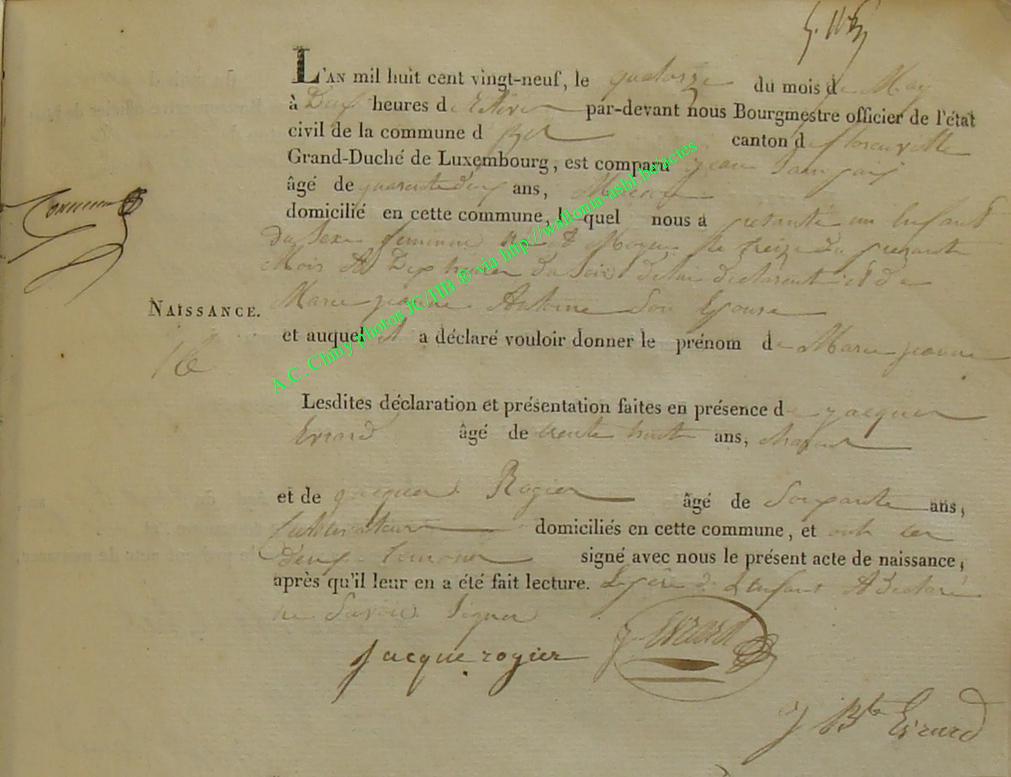 L'AN mil huit cent vingt-neuf, le quatorze du mois de May
à Deux heures de relevé par-devant nous Bourgmestre officier de l'état
civil de la commune d canton de florenville
Grand-Duché de Luxembourg, est comparu jean
âgé de quarante deux ans,
domicilié en cette commune, lequel nous a présenté un Enfant
du Sexe feminin né à Moyen le treize du présent
Mois A Dix heures du Soir de lui déclarant et de
NAISSANCE.
Marie jeanne Antoine Son Epouse
et auquel il a déclaré vouloir donner le prénom de Marie jeanne
16
Lesdites déclaration et présentation faites en présence de jacques
Evrard âgé de trente huit ans,
et de jacques Rogier âgé de Soixante ans,
Cultivateur domiciliés en cette commune, et ont les
deux temoins signé avec nous le présent acte de naissance,
après qu'il leur en a été fait lecture. Le père de L'enfant A déclaré
ne Savoir Signer
jacque rogier J Evrard
J Bte Evrard
A.C. Chiny photos JC/HB © via http://wallonia-asbl.be/actes